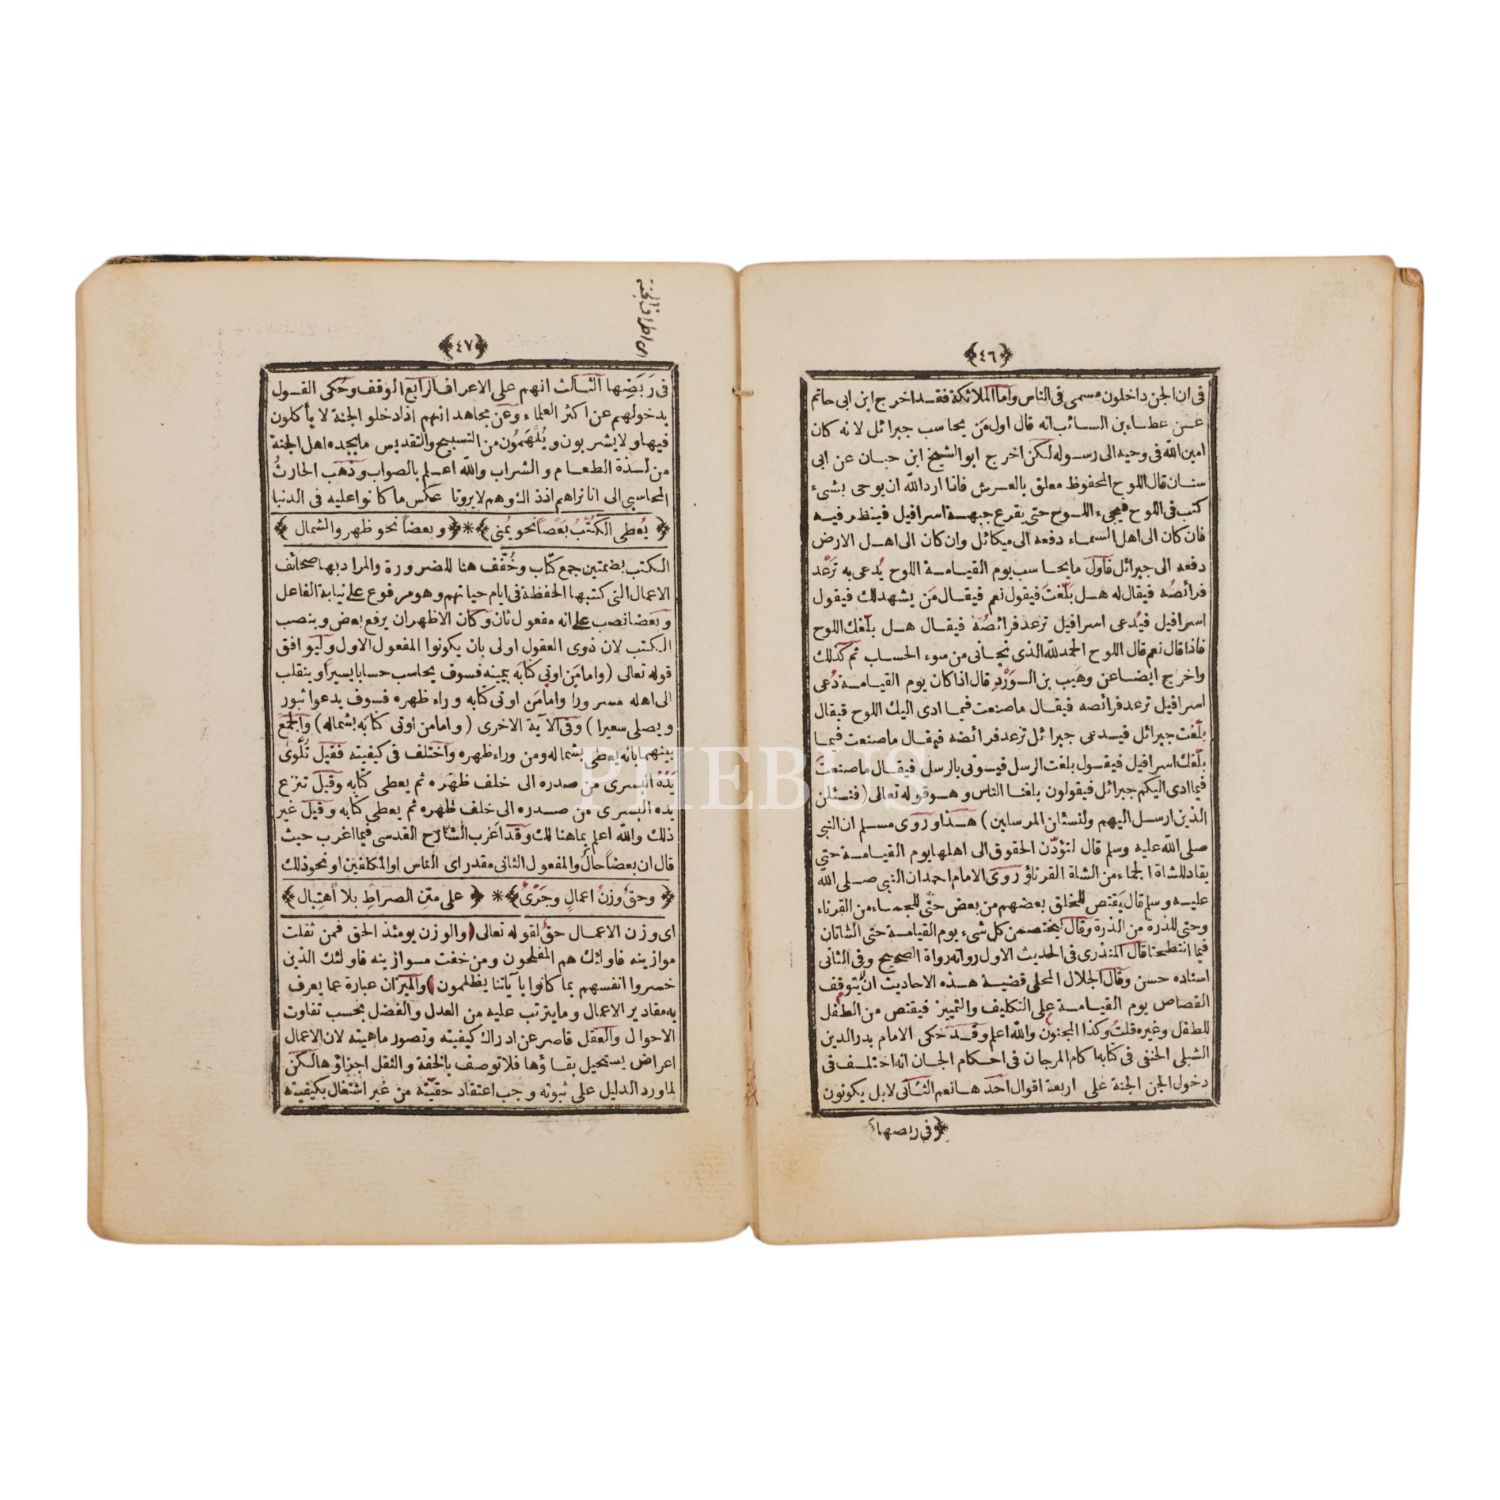 ﴿٤٦﴾
فى ان الجن داخلون مسمى فى الناس واما الملائكة فقد اخرج ابن ابى حاتم
عن عطاء بن السائب انه قال اول من يحاسب جبرائل لانه كان
امين الله فى وحيه الى رسوله لكن اخرج ابو الشيخ ابن حبان عن ابى
سنان قال اللوح المحفوظ معلق بالعرش فاذا ارد الله ان يوحى بشىء
كتب فى اللوح فيجىء اللوح حتى يقرع جبهة اسرافيل فينظر فيه
فان كان الى اهل السماء دفعه الى ميكائل وان كان الى اهل الارض
دفعه الى جبرائل فاول ما يحاسب يوم القيامة اللوح يُدعى به ترعد
فرائصه فيقال له هل بلّغت فيقول نعم فيقال من يشهد لك فيقول
اسرافيل فيُدعى اسرافيل ترعد فرائصه فيقال هل بلّغك اللوح
فاذا قال نعم قال اللوح الحمد لله الذى نجانى من سوء الحساب ثم كذلك
واخرج ايضا عن وهيب بن الورد قال اذا كان يوم القيامة دُعى
اسرافيل ترعد فرائصه فيقال ما صنعت فيما ادى اليك اللوح فيقال
بلّغت جبرائل فيدعى جبرائل ترعد فرائصه فيقال ما صنعت فيما
بلّغك اسرافيل فيقول بلغت الرسل فيوتى بارسل فيقال ما صنعت
فيما ادى اليكم جبرائل فيقولون بلغنا الناس وهو قوله تعالى (فنسئلن
الذين ارسل اليهم ولنسئلن المرسلين) هذا وروى مسلم ان النبى
صلى الله عليه وسلم قال لتؤدّن الحقوق الى اهلها يوم القيامة حتى
يقاد للشاة الجماء من الشاة القرناؤ روى الامام احمد ان النبى صلى الله
عليه وسلم قال يقتص للخلق بعضهم من بعض حتى للجماء من القرناء
وحتى للذرة من الذرة وقال ليختصمن كل شىء يوم القيامة حتى الشاتان
فيما انتطحتا قال المنذرى فى الحديث الاول رواته رواة الصحيح وفى الثانى
اسناده حسن وقال الجلال المحلى قضية هذه الاحاديث ان يتوقف
القصاص يوم القيامة على التكليف والتمييز فيقتص من الطفل
للطفل وغيره قلت وكذا المجنون والله اعلم وقد حكى الامام بدر الدين
الشبلى الحنفى فى كتابه اكام المرجان فى احكام الجان انه اختلف فى
دخول الجن الجنة على اربعة اقوال احدها نعم الثانى لا بل يكونون
﴿فى ربضها﴾
﴿٤٧﴾
فى رَبَضِها الثالث انهم على الاعراف الرابع الوقف وحُكى القول
بدخولهم عن اكثر العلماء وعن مجاهد انهم اذا دخلو الجنة لا يأكلون
فيها ولا يشربون ويُلهَمُون من التسبيح والتقديس ما يجده اهل الجنة
من لذة الطعام والشراب والله اعلم بالصواب وذهب الحارثُ
المحاسبى الى انا نراهم اذذاك وهم لا يرونا عكس ما كانوا عليه فى الدنيا
﴿يُعطى الكُتْب بَعضاً نحو يُمنى﴾ * ﴿وبعضاً نحو ظهر والشمال﴾
الكتب بضمتين جمع كتاب وخُفّف هنا للضرورة والمراد بها صحائف
الاعمال التى كتبها الحفظة فى ايام حياتهم وهو مرفوع على نيابة الفاعل
وبعضا نصب على انه مفعول ثان وكان الاظهر ان يرفع بعض وينصب
الكتب لان ذوى العقول اولى بان يكونوا المفعول الاول وليوافق
قوله تعالى (واما من اوتى كتابه بيمينه فسوف يحاسب حسابا يسيرا وينقلب
الى اهله مسرورا واما من اوتى كتابه وراء ظهره فسوف يدعوا ثبور
ويصلى سعيرا) وفى الآية الاخرى (واما من اوتى كتابه بشماله) والجمع
بينهما بانه يعطى بشماله ومن وراء ظهره واختلف فى كيفيته فقيل تُلوى
يَدُهُ اليسرى من صدره الى خلف ظهره ثم يعطى كتابه وقيل تنزع
يده اليسرى من صدره الى خلف ظهره ثم يعطى كتابه وقيل غير
ذلك والله اعلم بما هنالك وقد اغرب الشارح القدسى فيما اغرب حيث
قال ان بعضا حالٌ والمفعول الثانى مقدر اى الناس او المكلفين او نحو ذلك
﴿وحق وزنُ اعمالٍ وجَرْىٌ﴾ * ﴿على متن الصراطِ بلا اهتبال﴾
اى وزن الاعمال حقٌ لقوله تعالى (والوزن يومئذ الحق فمن ثقلت
موازينه فاولئك هم المفلحون ومن خفت موازينه فاولئك الذين
خسروا انفسهم بما كانوا بآياتنا يظلمون) والميزان عبارة عما يعرف
به مقادير الاعمال وما يترتب عليه من العدل والفضل بحسب تفاوت
الاحوال والعقل قاصر عن ادراك كيفيته وتصور ماهيته لان الاعمال
اعراض يستحيل بقاؤها فلا توصف بالخفة والثقل اجزاؤها لكن
لما ورد الدليل على ثبوته وجب اعتقاد حقيّته من غير اشتغال بكيفيته
PHEBUS